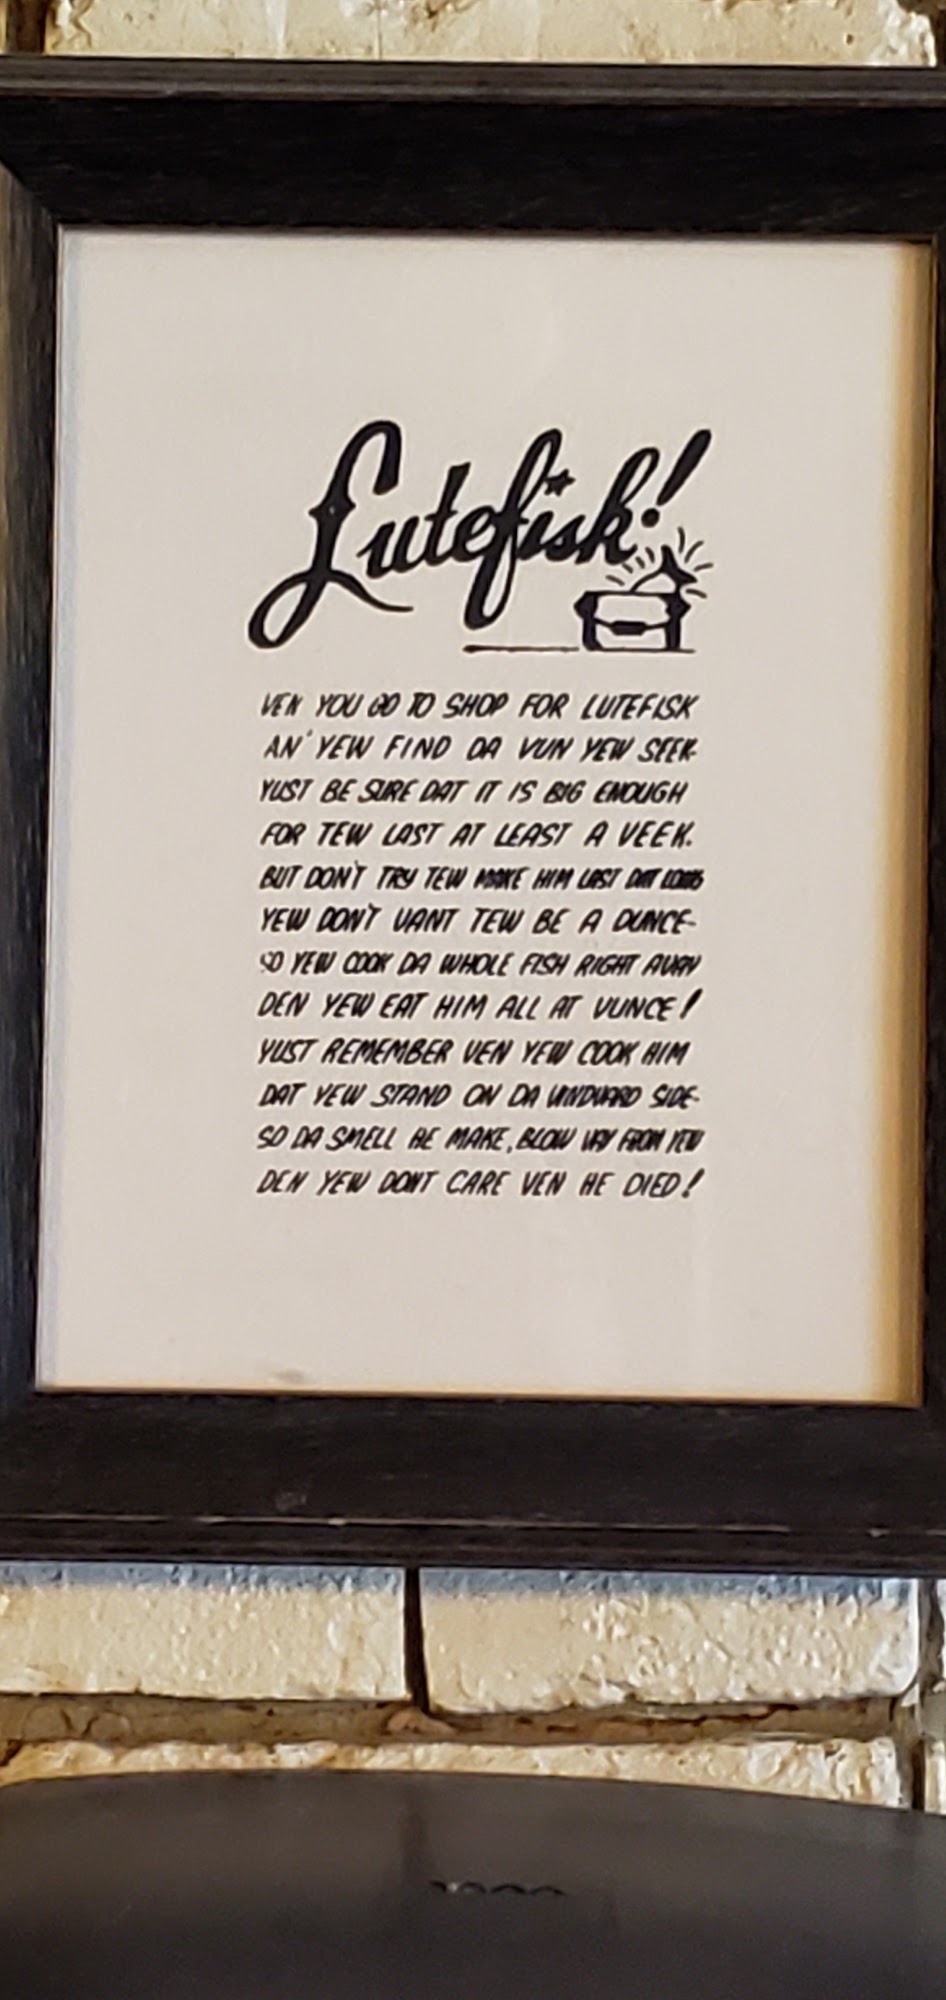 Lutefisk!
VEN YOU GO TO SHOP FOR LUTEFISK
AN' YEW FIND DA VUN YEW SEEK-
YUST BE SURE DAT IT IS BIG ENOUGH
FOR TEW LAST AT LEAST A VEEK.
BUT DON'T TRY TEW MAKE HIM LAST DAT LONG
YEW DON'T VANT TEW BE A DUNCE-
SO YEW COOK DA WHOLE FISH RIGHT AVAY
DEN YEW EAT HIM ALL AT VUNCE!
YUST REMEMBER VEN YEW COOK HIM
DAT YEW STAND ON DA VINDVARD SIDE-
SO DA SMELL HE MAKE, BLOW VAY FROM YEW
DEN YEW DONT CARE VEN HE DIED!